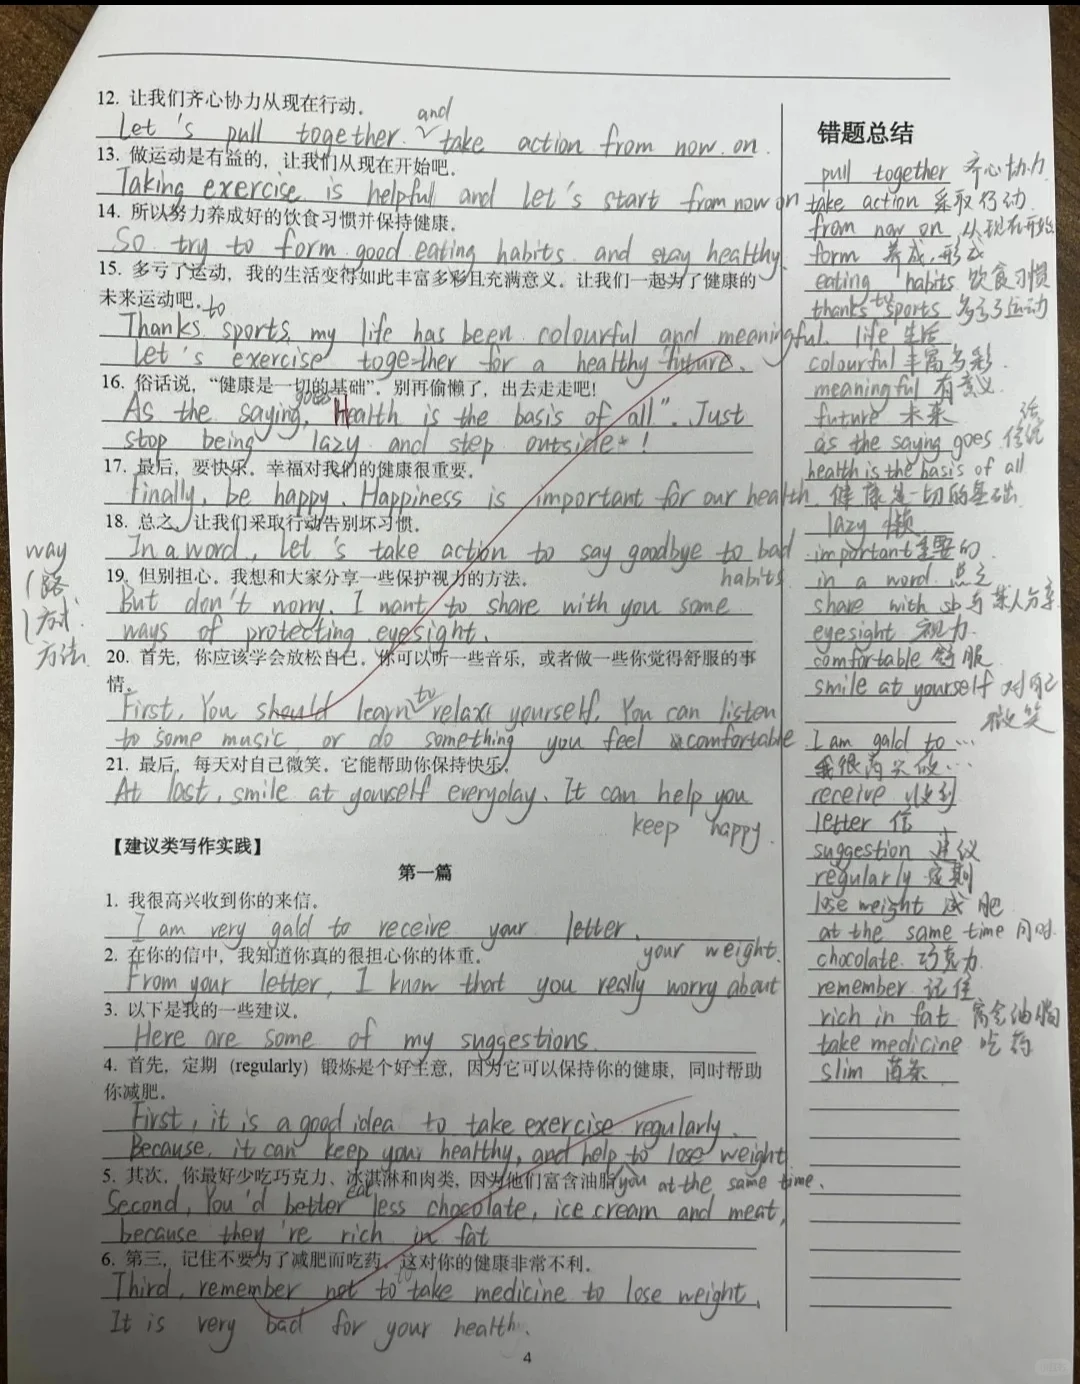 12. 让我们齐心协力从现在行动。
and
Let's pull together take action from now on.
13. 做运动是有益的，让我们从现在开始吧。
Taking exercise is helpful and let's start from now on
14. 所以努力养成好的饮食习惯并保持健康。
So try to form good eating habits and stay healthy.
15. 多亏了运动，我的生活变得如此丰富多彩且充满意义。让我们一起为了健康的
未来运动吧。
to
Thanks sports, my life has been colourful and meaningful.
Let's exercise together for a healthy future.
16. 俗话说，“健康是一切的基础”。别再偷懒了，出去走走吧！
goes
As the saying, Health is the basis of all”. Just
stop being lazy and step outside!
17. 最后，要快乐。幸福对我们的健康很重要。
Finally, be happy. Happiness is important for our health.
18. 总之，让我们采取行动告别坏习惯。
In a word, let's take action to say goodbye to bad
habits.
19. 但别担心。我想和大家分享一些保护视力的方法。
But don't worry. I want to share with you some
ways of protecting eyesight.
20. 首先，你应该学会放松自己。你可以听一些音乐，或者做一些你觉得舒服的事
情。
to
First, You should learn relax yourself. You can listen
to some music, or do something you feel comfortable
21. 最后，每天对自己微笑。它能帮助你保持快乐。
At last, smile at yourself everyday. It can help you
keep happy.
way
路
方式
方法
【建议类写作实践】
第一篇
1. 我很高兴收到你的来信。
I am very gald to receive your letter.
2. 在你的信中，我知道你真的很担心你的体重。
your weight.
From your letter, I know that you really worry about
3. 以下是我的一些建议。
Here are some of my suggestions.
4. 首先，定期（regularly）锻炼是个好主意，因为它可以保持你的健康，同时帮助
你减肥。
First, it is a good idea to take exercise regularly.
Because, it can keep your healthy, and help to lose weight
you at the same time.
5. 其次，你最好少吃巧克力、冰淇淋和肉类，因为他们富含油脂
eat
Second, You'd better less chocolate, ice cream and meat,
because they're rich in fat
6. 第三，记住不要为了减肥而吃药。这对你的健康非常不利。
to
Third, remember not to take medicine to lose weight.
It is very bad for your health.
4
错题总结
pull together 齐心协力
take action 采取行动
from now on 从现在开始
form 养成,形成
eating habits 饮食习惯
to
thanks sports 多亏了运动
life 生活
colourful 丰富多彩
meaningful 有意义
future 未来
as the sayng goes 俗话
health is the basis of all
健康是一切的基础
lazy 懒
important 重要的
in a word 总之
share with sb 与某人分享
eyesight 视力
comfortable 舒服
smile at yourself 对自己
微笑
I am gald to …
我很高兴做…
receive 收到
letter 信
suggestion 建议
regularly 定期
lose weight 减肥
at the same time 同时
chocolate 巧克力
remember 记住
rich in fat 富含油脂
take medicine 吃药
slim 苗条